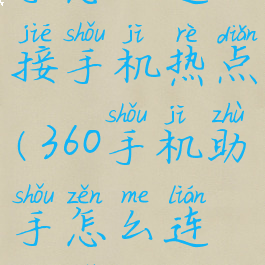 jiē shǒu jī rè diǎn
接手机热点
shǒu jī zhù
(360手机助
shǒu zěn me lián
手怎么连